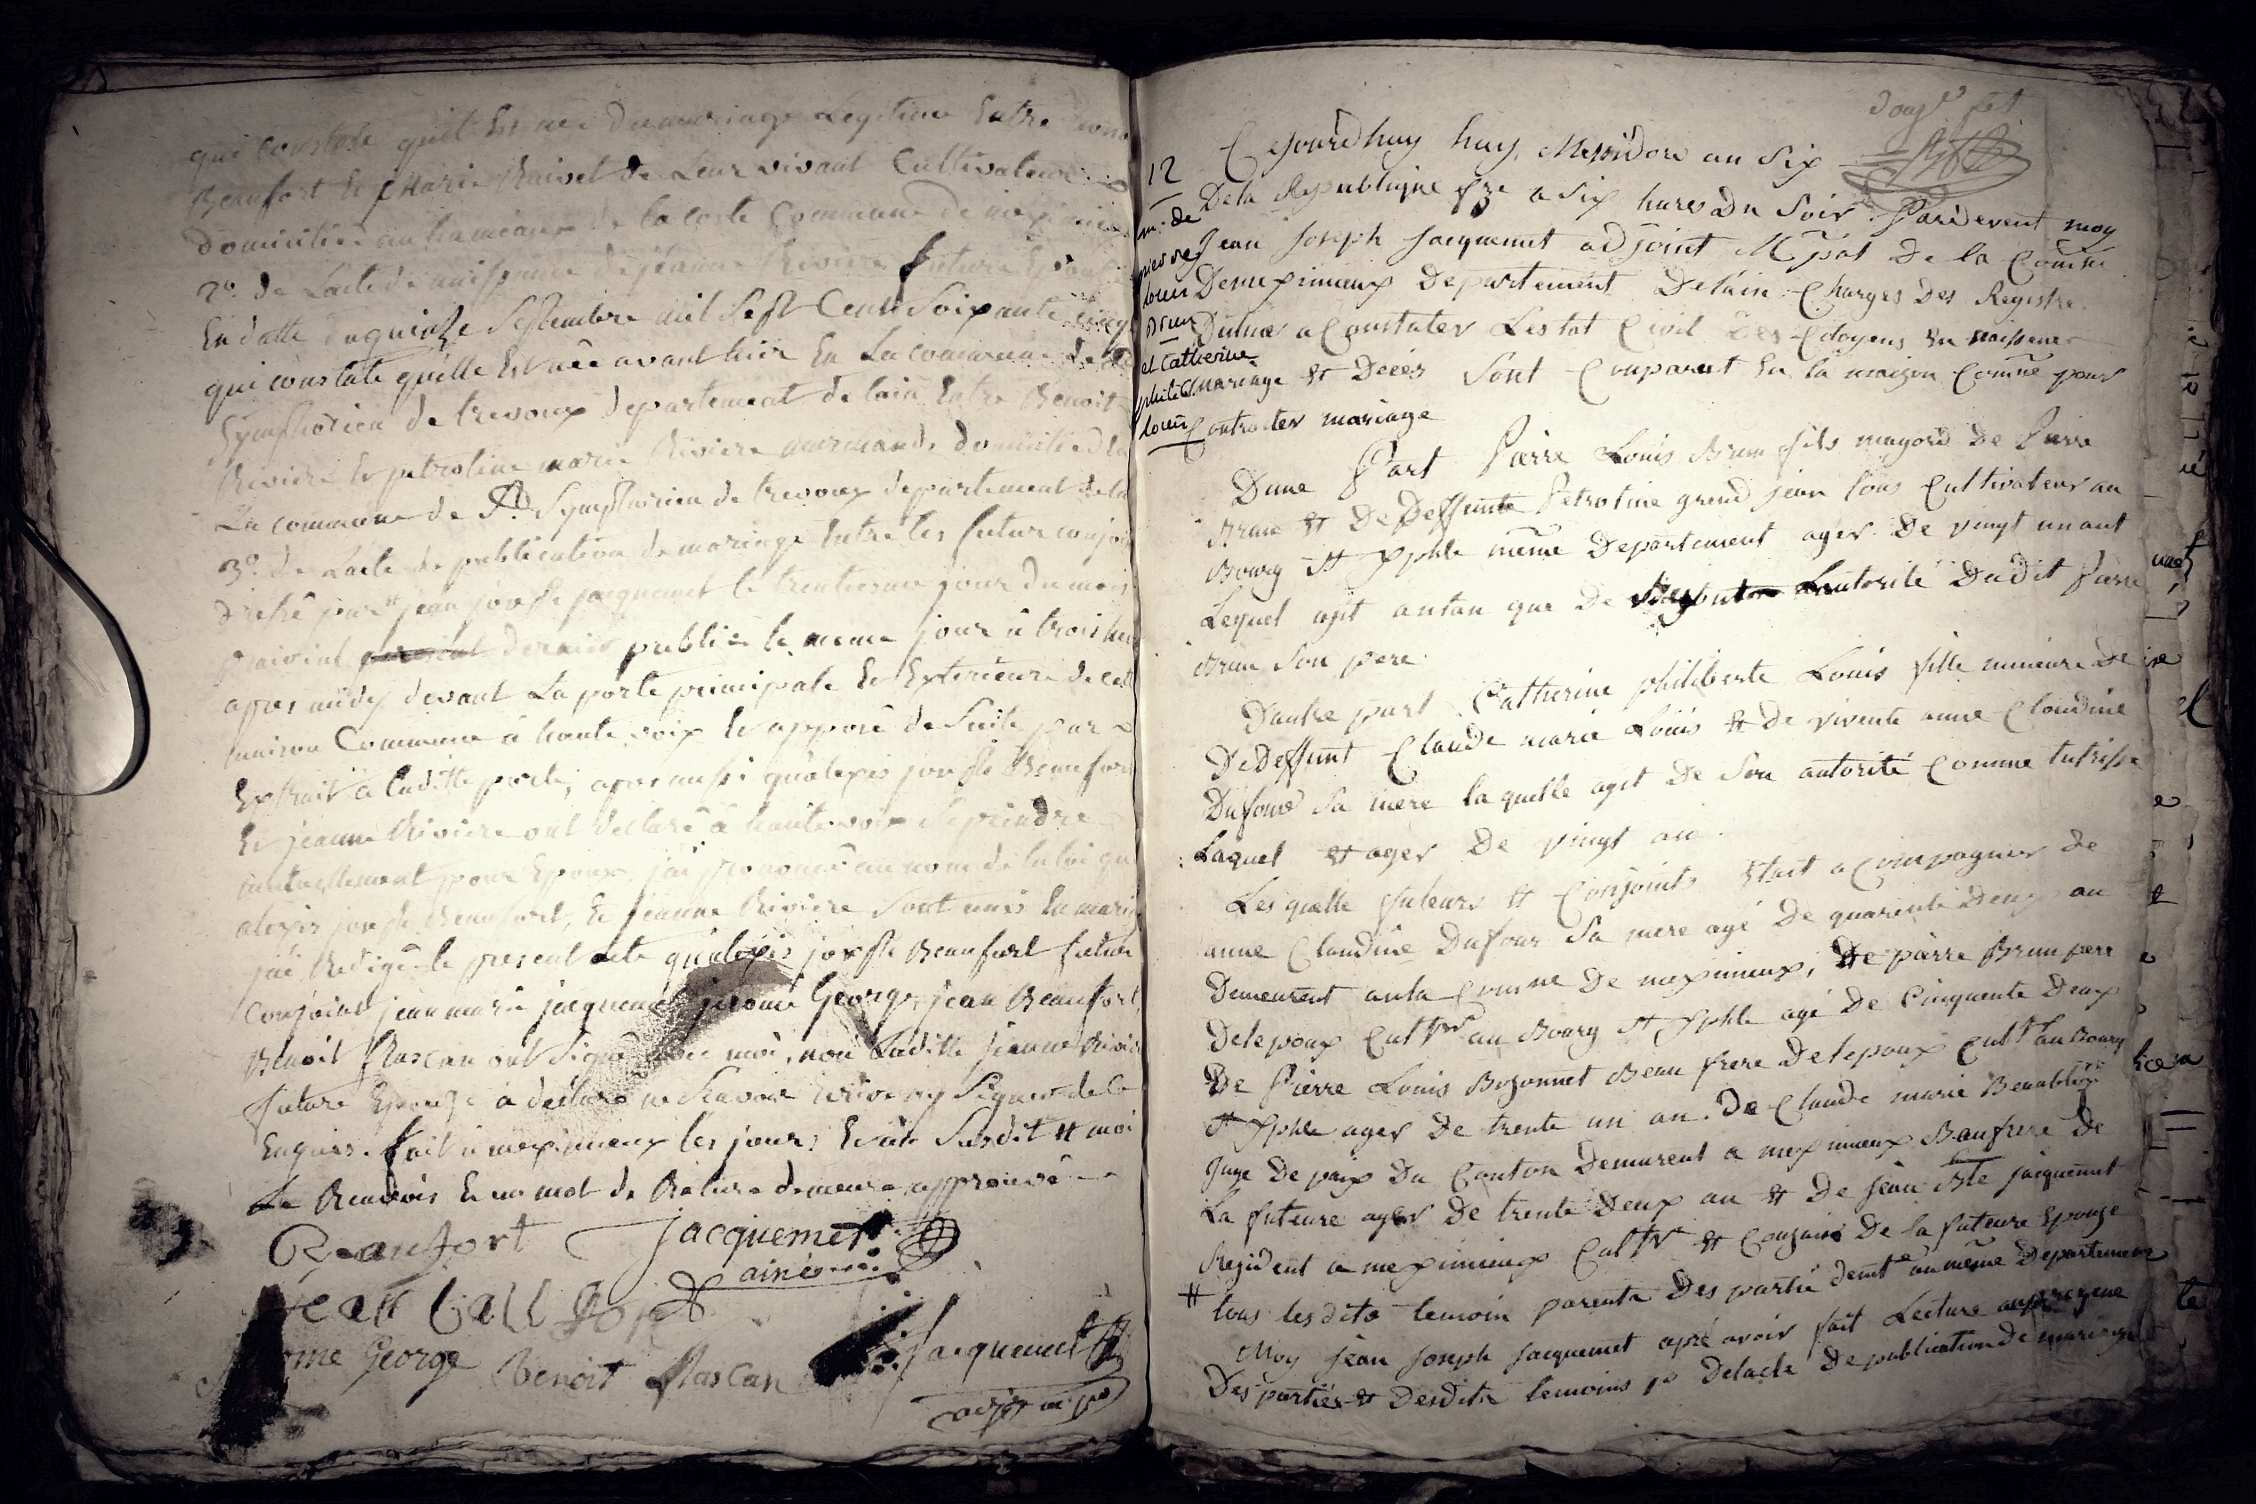 qui constate quil Est né du mariage Legitime Entre
Beaufort Et Marie Raivet de Leur vivant Cultivateur
domiciliés au hameaux de la coste Commune de meximieux
2º. de Lacte de naissance de jeanne Riviere future Epouse
En datte du quinze Septembre mil Sept Cent Soixante cinq
qui constate quelle Est née avant hier En La commune de
Symphorien de trevoux departement de lain Entre Benoit
Riviere Et petroline marie Riviere domiciliés
La commune de St. Symphorien de trevoux departement de lain
3º. de Lacte de publication de mariage Entre les futur conjoint
dréssé par jean joseph jacquemet le trentiesme jour du mois
prairial dernier publié le meme jour à trois heures
apres midy devant La porte principale Et Exterieure de cette
maison Commune à haute voix Et apposé de Suite par
Extrait à laditte porte, apres aussi qualexis joseph Beaufort
Et jeanne Riviere ont déclaré à haute voix Se prendre
mutuellement pour Epoux, jai prononcé au nom de la loi que
alexis joseph Beaufort, Et jeanne Riviere Sont unis En mariage
jai Redigé le present acte qualexis joseph Beaufort futur
Conjoint jean marie jacquemet jerome George, jean Beaufort,
Benoit Rascan ont Signé avec moi, non Laditte jeanne Riviere
future Epouze a déclaré ne Scavoir Ecrire ny Signer de ce
Enquis. fait à meximieux les jour, Et an Susdit # moi
Le Renvois Et un mot de Rature demeure approuvé
Beaufort Jacquemet
ainé
jean
jerome George Benoit Rascan Jacquemet
adjt m pal
12
m. de
pierre
louis
Brun
et Catherine
philib.
louis
Cejourdhuy huy, Messidore an Six
Dela Republique fze a Six hures Du Soir. Pardevent moy
Jean Joseph Jacquemet adjoint Mpal De la Comñe
Demeximieux Departement Delain Charges Des Registre
Dutnes a Constater Lestat Civil Des Citoyens En naissence
Mariage Et Décés Sont Comparut En la maizon Comñe pour
Contracter mariage
Dune Part Pierre Louis Brun fils mayord De Pierre
Brun Et De Deffunte Petroline grend jean tous Cultivateur au
Bourg St Xphle même Departement ager De vingt un ant
Lequel agit antan que De Lautorité Dudit Pierre
Brun Son pere
Dautre part Catherine philiberte Louis fille mineure De
De Deffunt Claude marie Louis Et De vivente anne Claudine
Dufour Sa mere laquelle agit De Son autorité Comme tutrisse
Laquel Et ager De vingt an
Lesquelle futeurs Et Conjoints Etait acompagner De
anne Claudine Dufour Sa mere agé De quarente Deux an
Demeurent aula Comne De meximieux, De piérre Brun pere
Delepoux Cultvr au Bourg St Xphle agé De Cinquente Deux
De Pierre Louis Bozonnet Beau frere Delepoux Cultr au Bourg
St Xphle ager De trente un an. De Claude marie
Juge De paix Du Conton Demurent a meximieux Baufrere De
La futeure ager De trente Deux an Et De jean Bte jacquemet
Rezident a meximieux Cultvr Et Cousain De la futeure Epouze
# tous lesdits temoin parents Des partie demte au même Departement
Moy jean Joseph Jacquemet apré avoir fait Lecture
Des parties Et Desdits temoins 1º Delacte De publication De mariage